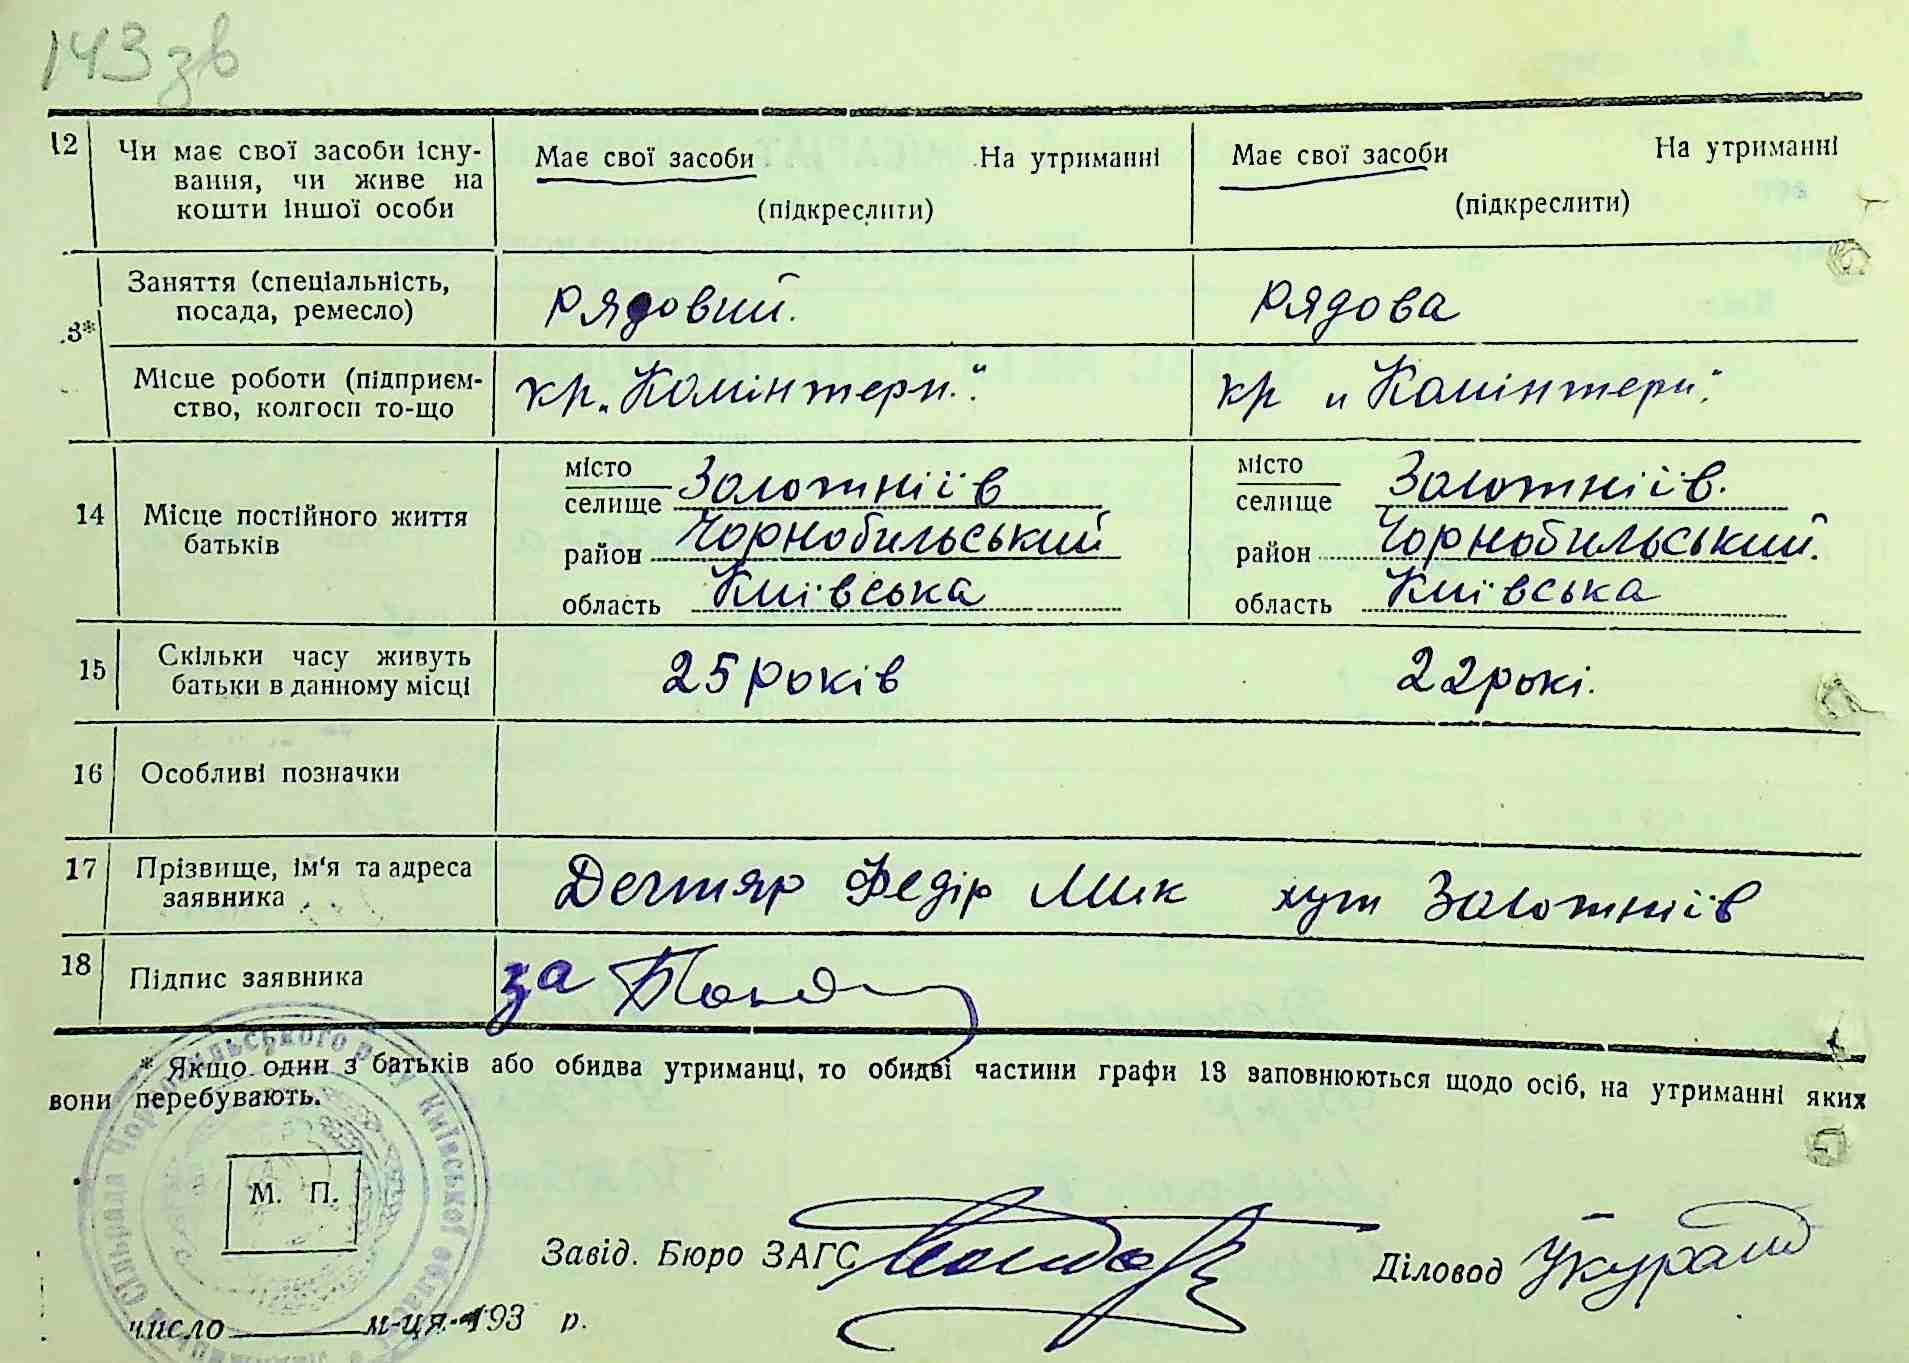 143зв
12 Чи має свої засоби існу- Має свої засоби На утриманні Має свої засоби На утриманні
вання, чи живе на
кошти іншої особи (підкреслити) (підкреслити)
Заняття (спеціальність,
посада, ремесло) рядовий. рядова
3*
Місце роботи (підприєм- кр. „Комінтерн." кр „Комінтерн".
ство, колгосп то-що
місто Золотніїв місто Золотніїв.
селище селище
14 Місце постійного життя район Чорнобильський район Чорнобильський.
батьків
область Київська область Київська
15 Скільки часу живуть 25 років 22 рокі.
батьки в данному місці
16 Особливі позначки
17 Прізвище, ім'я та адреса Дегтяр Федір Мик хут Золотніїв
заявника
18 Підпис заявника за
* Якщо один з батьків або обидва утриманці, то обидві частини графи 13 заповнюються щодо осіб, на утриманні яких
вони перебувають.
М. П.
Завід. Бюро ЗАГС Діловод
число м-ця 193 р.
сільрада Чорнобильського р-ну Київської област